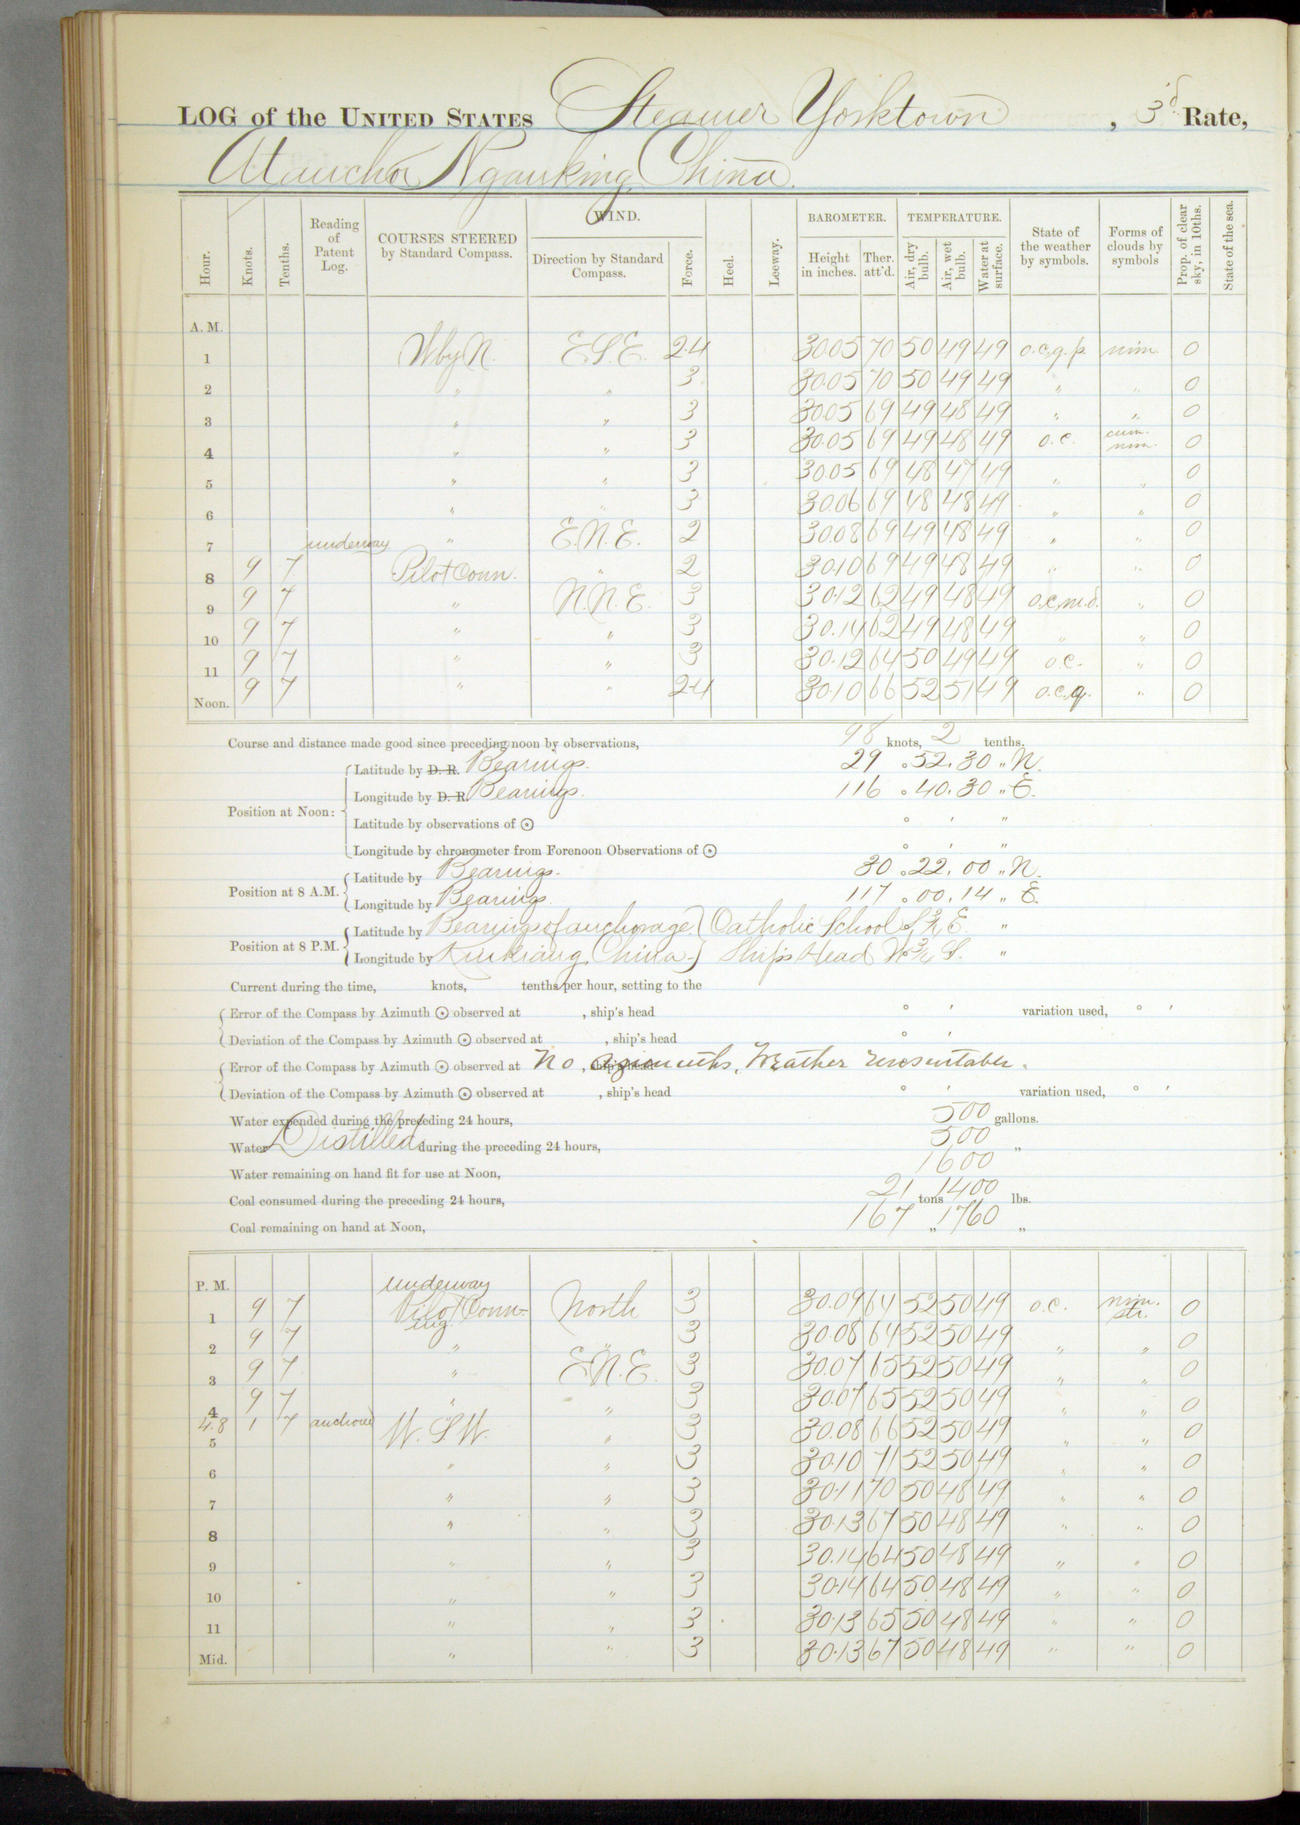 LOG of the UNITED STATES Steamer Yorktown, 3d Rate,
At anchor Nganking, China.
Hour. Knots. Tenths. Reading of Patent Log. COURSES STEERED by Standard Compass. WIND. Direction by Standard Compass. Force. Heel. Leeway. BAROMETER. Height in inches. Ther. att'd. TEMPERATURE. Air, dry bulb. Air, wet bulb. Water at surface. State of the weather by symbols. Forms of clouds by symbols Prop. of clear sky, in 10ths. State of the sea.
A. M.
1 W by N. E.S.E. 2-4 30.05 70 50 49 49 o.c.q.p. nim. 0
2 " " 3 30.05 70 50 49 49 " " 0
3 " " 3 30.05 69 49 48 49 " " 0
4 " " 3 30.05 69 49 48 49 o.c. cum. nim. 0
5 " " 3 30.05 69 48 47 49 " " 0
6 " " 3 30.06 69 48 48 49 " " 0
7 underway " E.N.E. 2 30.08 69 49 48 49 " " 0
8 9 7 Pilot Conn. " 2 30.10 69 49 48 49 " " 0
9 9 7 " N.N.E. 3 30.12 62 49 48 49 o.c.m.d. " 0
10 9 7 " " 3 30.14 62 49 48 49 " " 0
11 9 7 " " 3 30.12 64 50 49 49 o.c. " 0
Noon. 9 7 " " 2-4 30.10 66 52 51 49 o.c.q. " 0
Course and distance made good since preceding noon by observations, 98 knots, 2 tenths.
Position at Noon: Latitude by D. R. Bearings. 29 ° 52 ' 30 " N.
Longitude by D. R. Bearings. 116 ° 40 ' 30 " E.
Latitude by observations of ☉ ° ' "
Longitude by chronometer from Forenoon Observations of ☉ ° ' "
Position at 8 A.M. Latitude by Bearings. 30 ° 22 ' 00 " N.
Longitude by Bearings. 117 ° 00 ' 14 " E.
Position at 8 P.M. Latitude by Bearings of anchorage Catholic School S. E. "
Longitude by Kiukiang, China. Ship's Head W. S. "
Current during the time, knots, tenths per hour, setting to the
Error of the Compass by Azimuth ☉ observed at , ship's head ° ' variation used, ° '
Deviation of the Compass by Azimuth ☉ observed at , ship's head ° '
Error of the Compass by Azimuth ☉ observed at No azimuths, Weather unsuitable.
Deviation of the Compass by Azimuth ☉ observed at , ship's head ° ' variation used, ° '
Water expended during the preceding 24 hours, 500 gallons.
Water Distilled during the preceding 24 hours, 500 "
Water remaining on hand fit for use at Noon, 1600
Coal consumed during the preceding 24 hours, 21 tons 1400 lbs.
Coal remaining on hand at Noon, 167 " 1760 "
P. M. underway
1 9 7 Pilot Conn-ing North 3 30.09 64 52 50 49 o.c. nim. str. 0
2 9 7 " " 3 30.08 64 52 50 49 " " 0
3 9 7 " E.N.E. 3 30.07 65 52 50 49 " " 0
4 9 7 " " 3 30.07 65 52 50 49 " " 0
4.8 1 7 anchored
5 W.S.W. " 3 30.08 66 52 50 49 " " 0
6 " " 3 30.10 71 52 50 49 " " 0
7 " " 3 30.11 70 50 48 49 " " 0
8 " " 3 30.13 67 50 48 49 " " 0
9 " " 3 30.14 64 50 48 49 " " 0
10 " " 3 30.14 64 50 48 49 " " 0
11 " " 3 30.13 65 50 48 49 " " 0
Mid. " " 3 30.13 67 50 48 49 " " 0